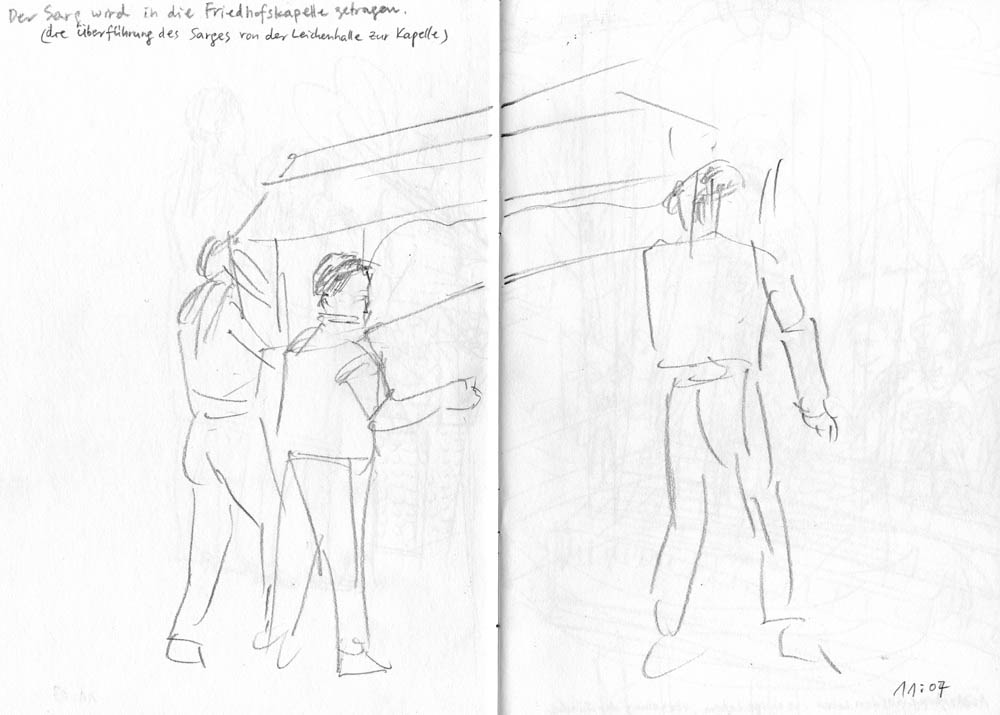 Der Sarg wird in die Friedhofskapelle getragen.
(die Überführung des Sarges von der Leichenhalle zur Kapelle)
11:07